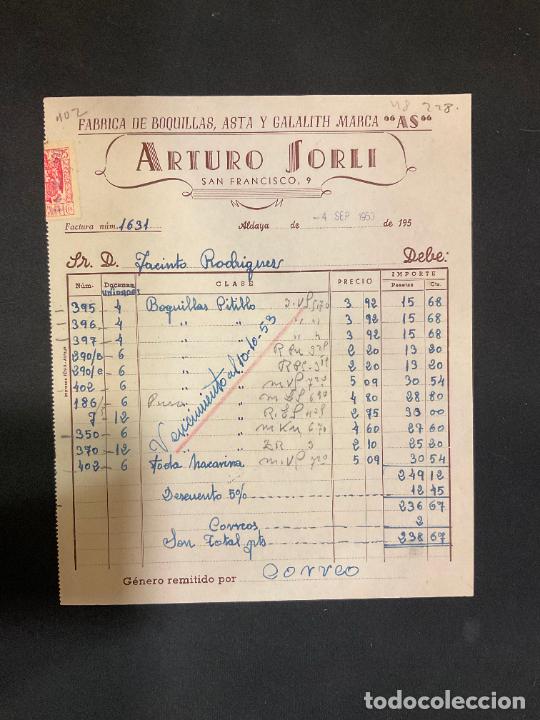 402 48 228.
FABRICA DE BOQUILLAS, ASTA Y GALALITH MARCA "AS"
ARTURO SORLI
SAN FRANCISCO, 9
Factura núm. 1631 Aldaya de -4 SEP 1953 de 195
Sr. D. Jacinto Rodriguez Debe:
Núm. Docenas CLASE PRECIO IMPORTE
UNIDADES Pesetas Cts.
395 - 4 Boquillas Pitillo 3 92 15 68
396 - 4 " " " 3 92 15 68
397 - 4 " " " 3 92 15 68
290/0 - 6 " " 2 20 13 20
290/8 - 6 " " 2 20 13 20
402 - 6 " " 5 09 30 54
186/ - 6 Pura " 4 80 28 80
7 - 12 " " 2 75 33 00
350 - 6 " " 4 60 27 60
370 - 12 " " 2 10 25 20
402 - 6 toda nacarina 5 09 30 54
Vencimiento al 10-10-53
249 12
Descuento 5% 12 45
236 67
Correos 2
Son Total pts 238 67
Género remitido por correo
todocoleccion
todocoleccion.net